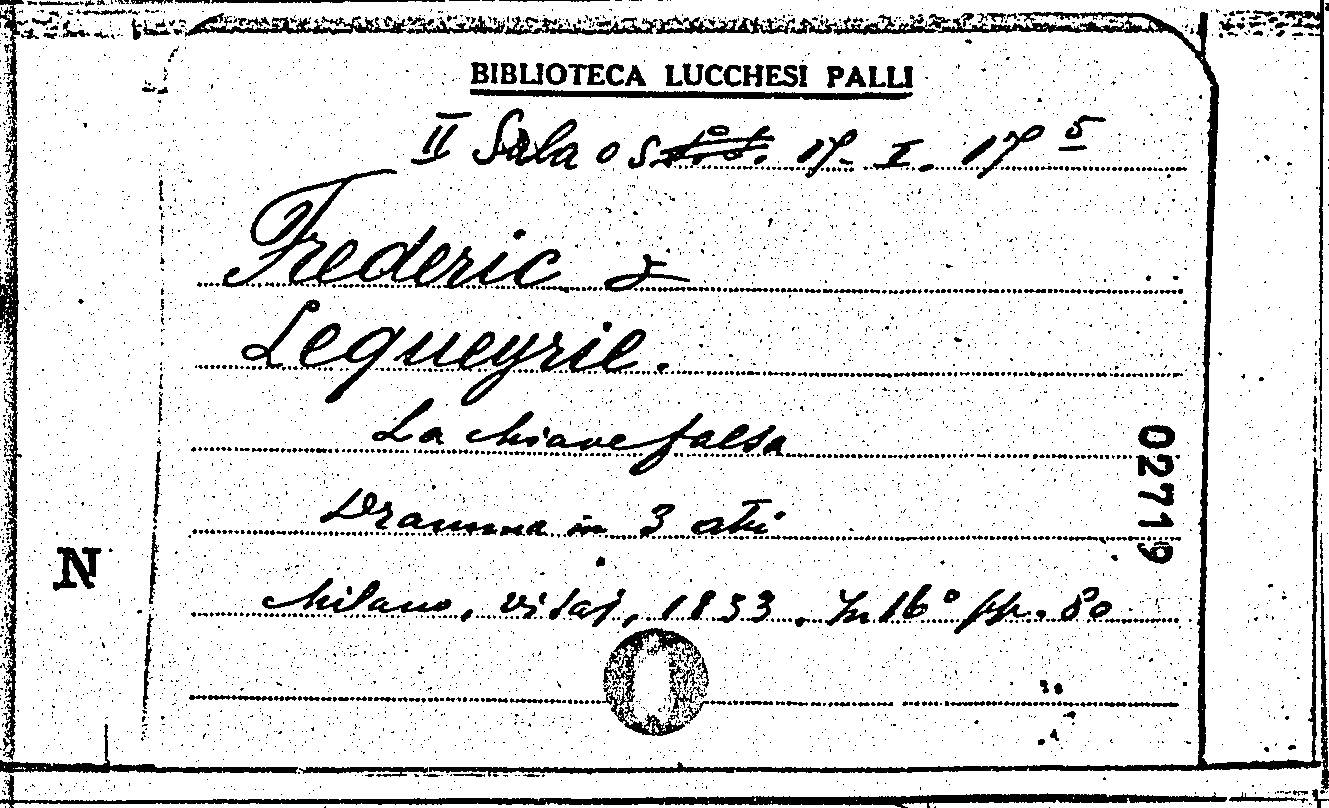 BIBLIOTECA LUCCHESI PALLI
II Sala 17. I. 17 5
Frederic &
Lequeyrie.
La chiave falsa
Dramma in 3 atti
Milano, Visaj, 1833. In 16° pp. 80
02719
N